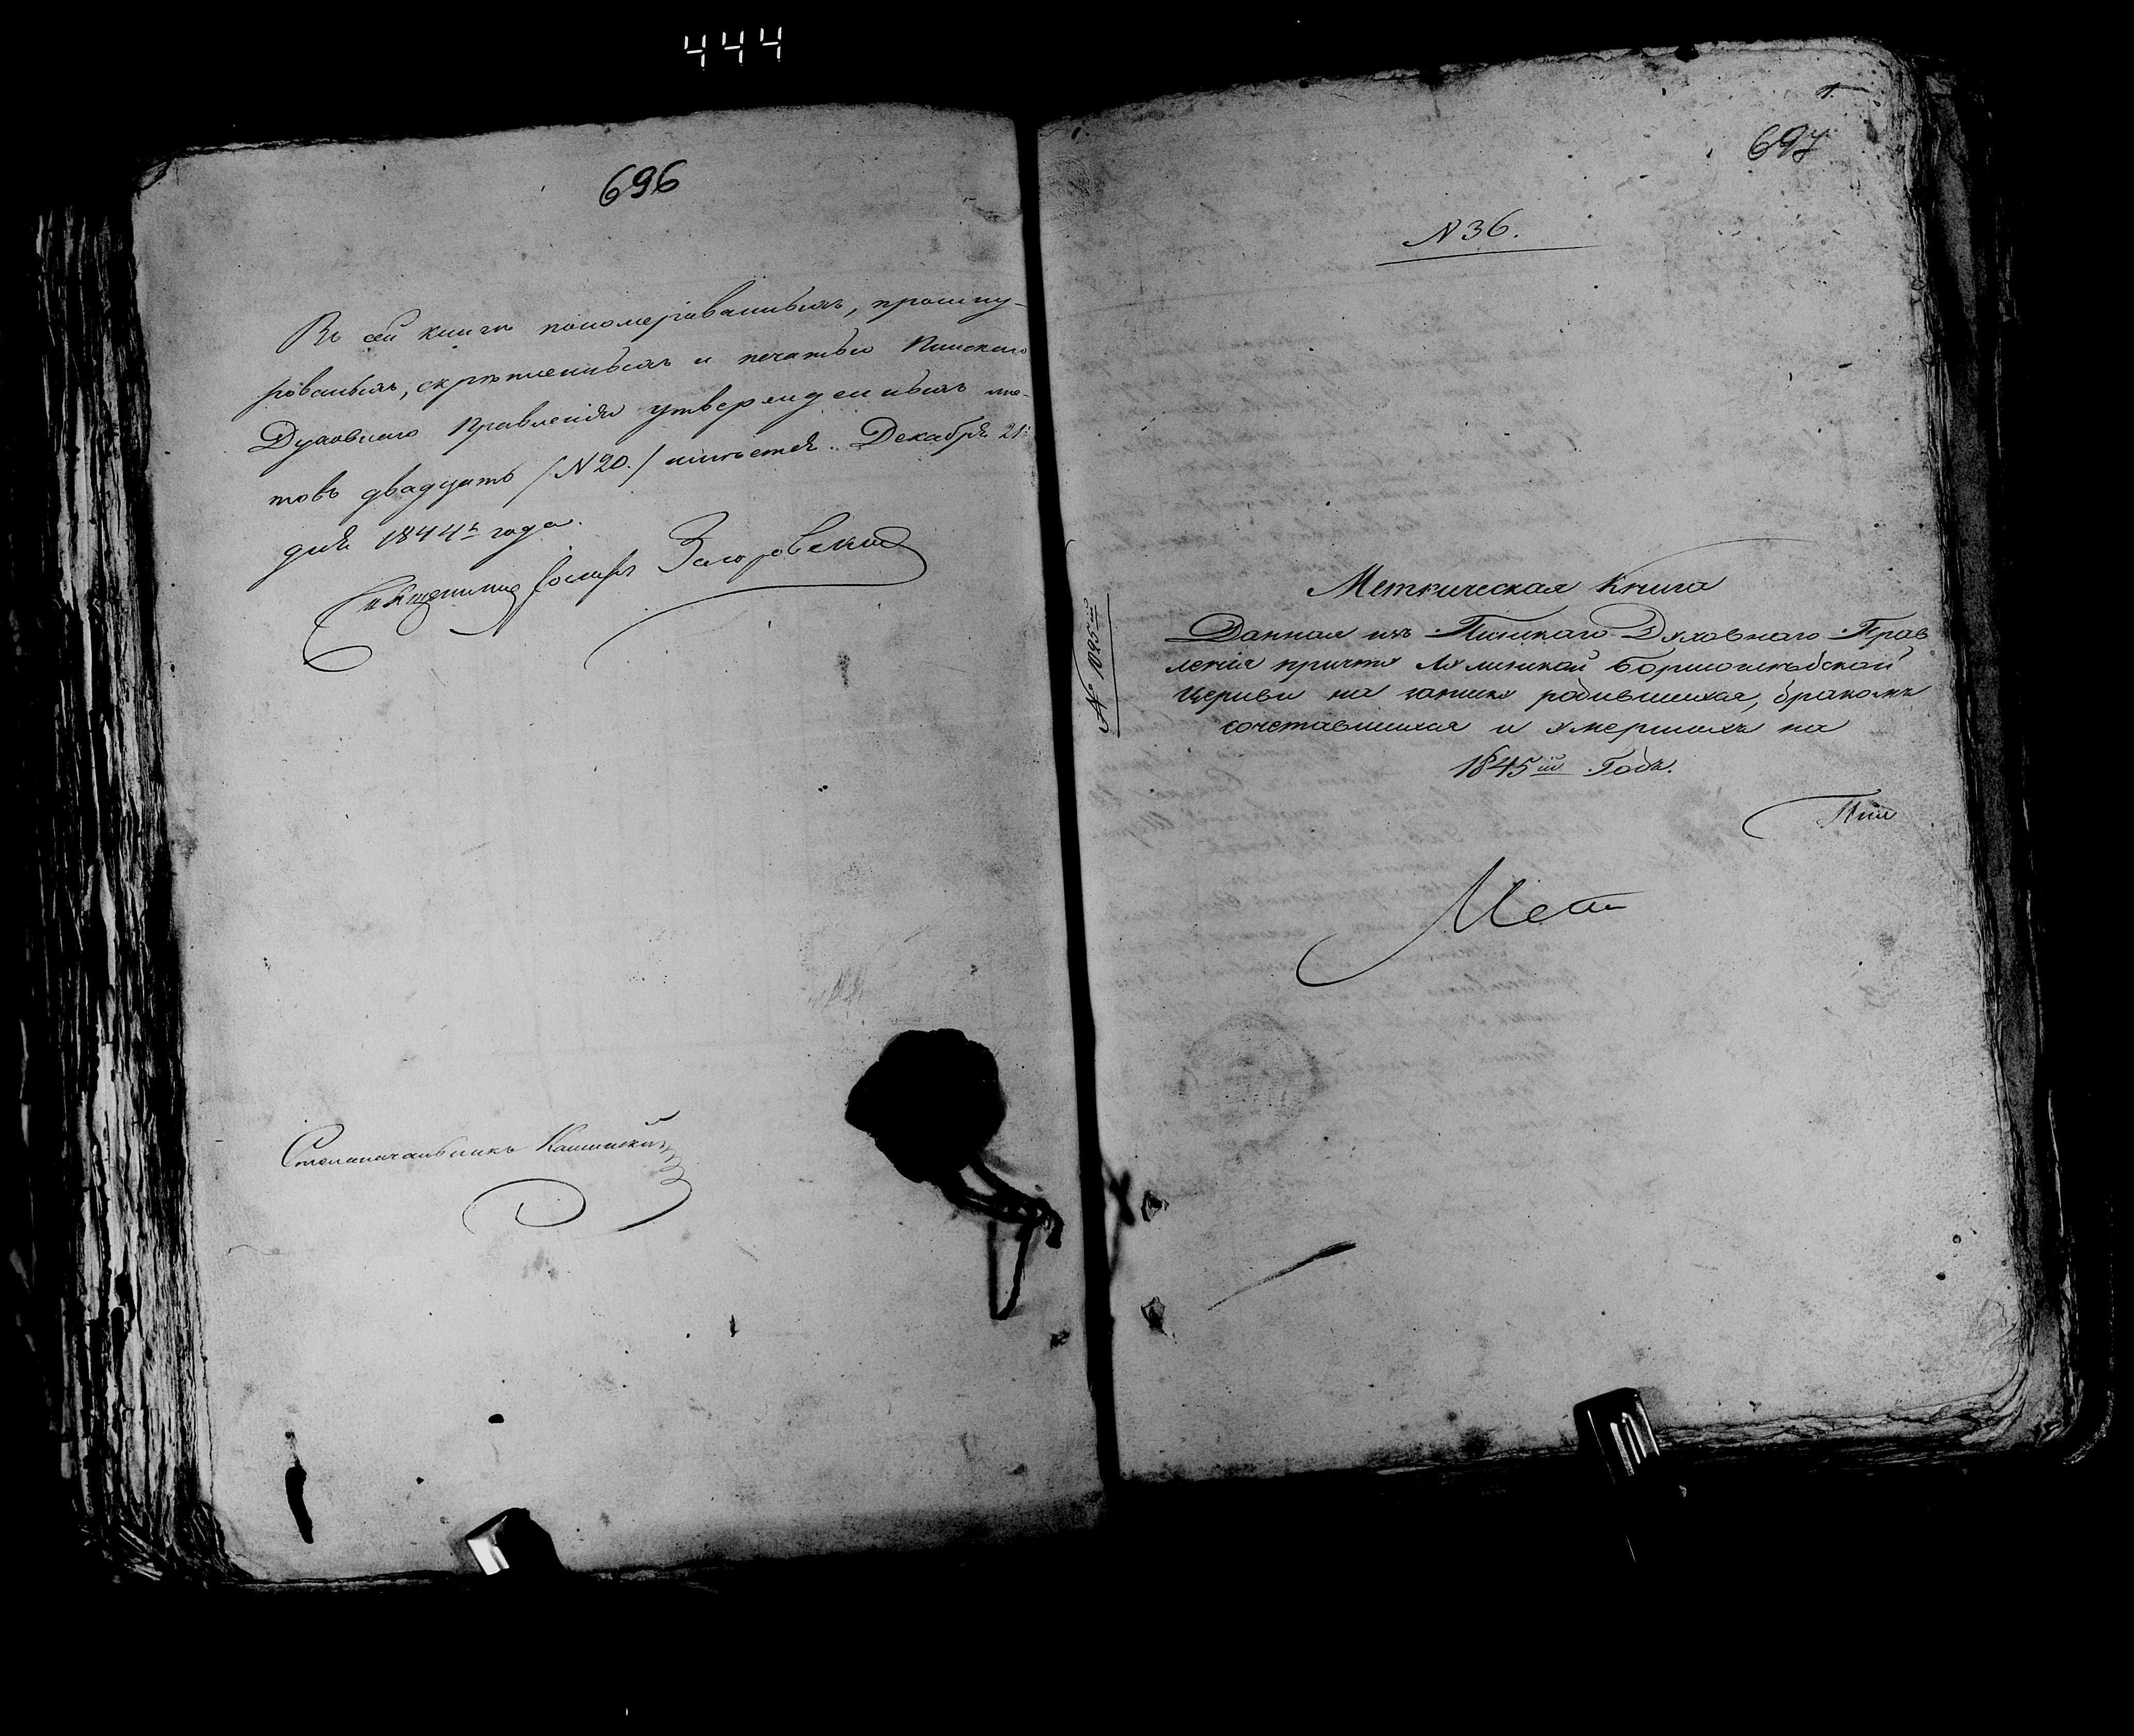 444
696
Въ сей книгѣ пономерованныхъ, прошну-
рованныхъ, скрѣпленныхъ и печатью Пинскаго
Духовнаго Правленія утвержденныхъ лис-
товъ двадцать /N 20./ имѣется. Декабря 21
дня 1844 года.
Священникъ Іосифъ
Столоначальникъ
697
1.
N 36.
№ 1095ій
Метрическая Книга
Данная изъ Пинскаго Духовнаго Прав
ленія причту
Церкви на записку родившихся, бракомъ
сочетавшихся и умершихъ на
1845ій Годъ.
Пин
Мет